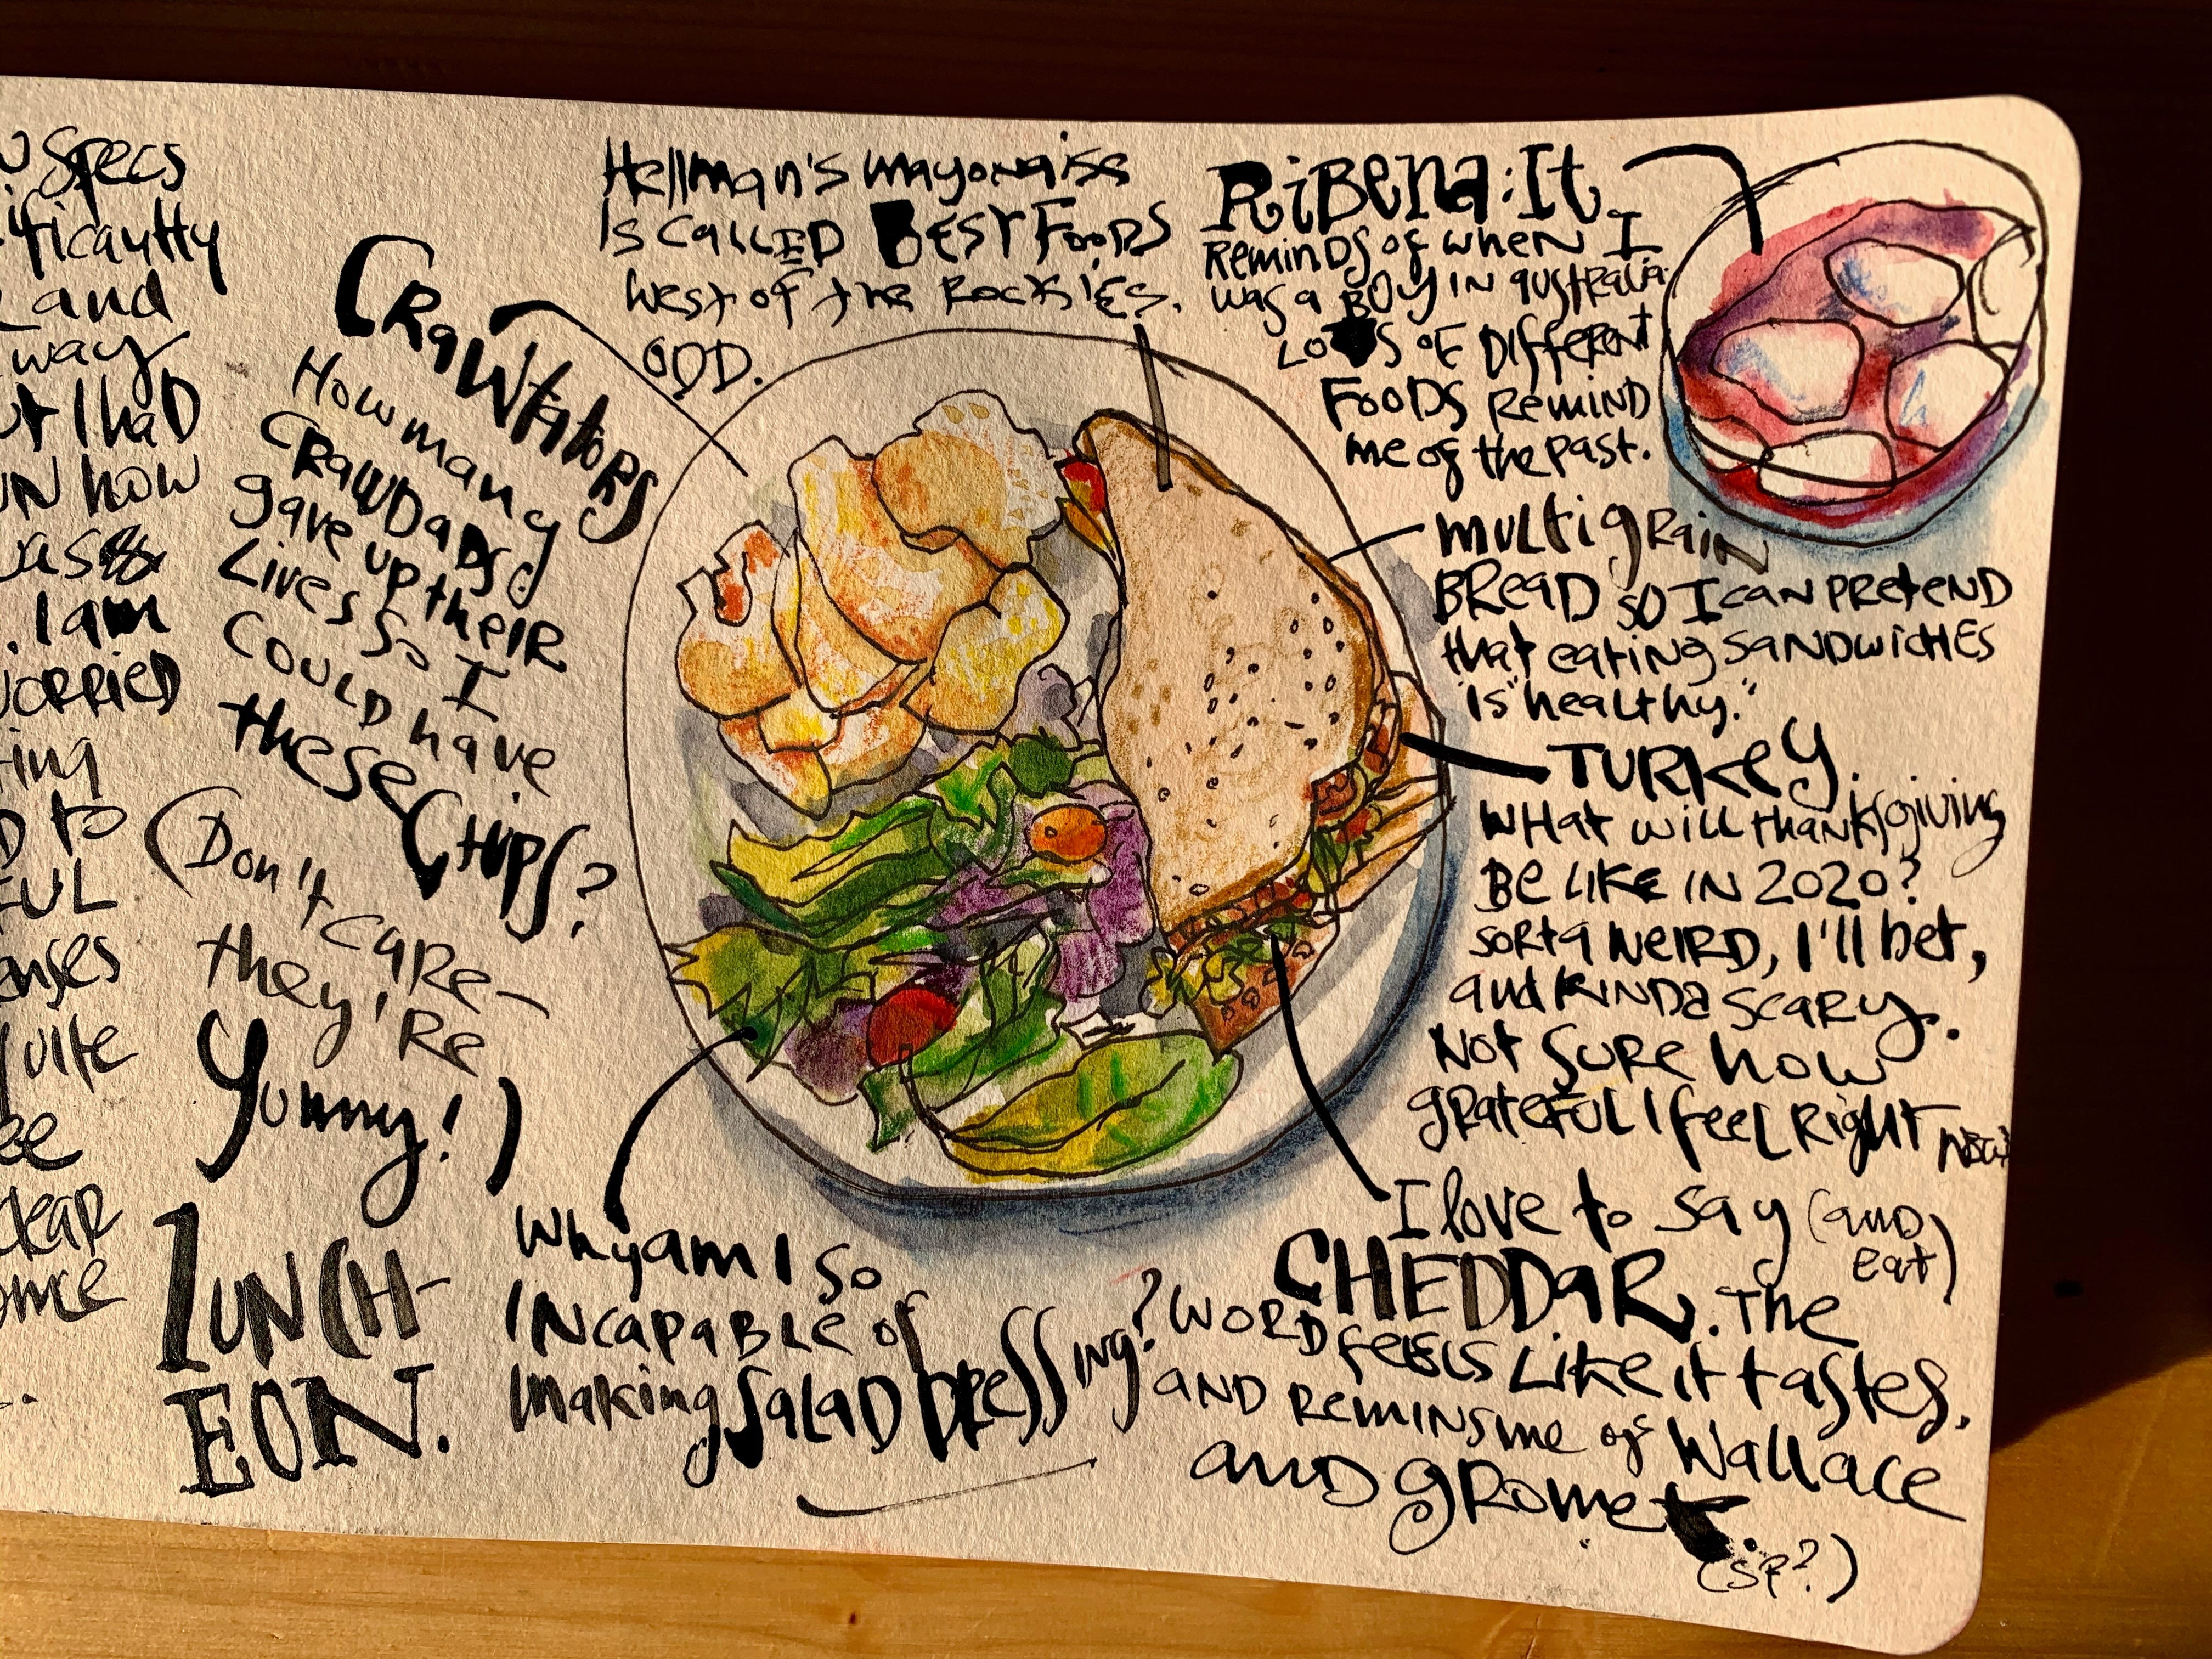 Specs
and
way
I had
how
I am
to
CRAWtators
How many
CRAWDADS
gave up their
Lives so I
COULD have
these CHIPS?
(Don't care-
they're
Yummy!)
LUNCH-
EON.
Hellman's mayonaise
Is CALLED BEST FOODS
West of the Rockies.
ODD.
RiBena: It
Reminds of when I
was a BOY IN australia.
LOTS OF Different
FOODS Remind
me of the past.
multigrain
BReaD so I can pretenD
that eating sanDwiches
is "healthy."
TURKey.
What will thanksgiving
Be Like in 2020?
sorta weird, I'll bet,
and KINDa scary.
Not sure how
grateful I feel Right now
I love to say (and
eat)
CHEDDaR. The
WORD feels Like it tastes,
AND Remins me of Wallace
and gromet.
(sp?)
Why am I so
INcapable of
making Salad DRessing?